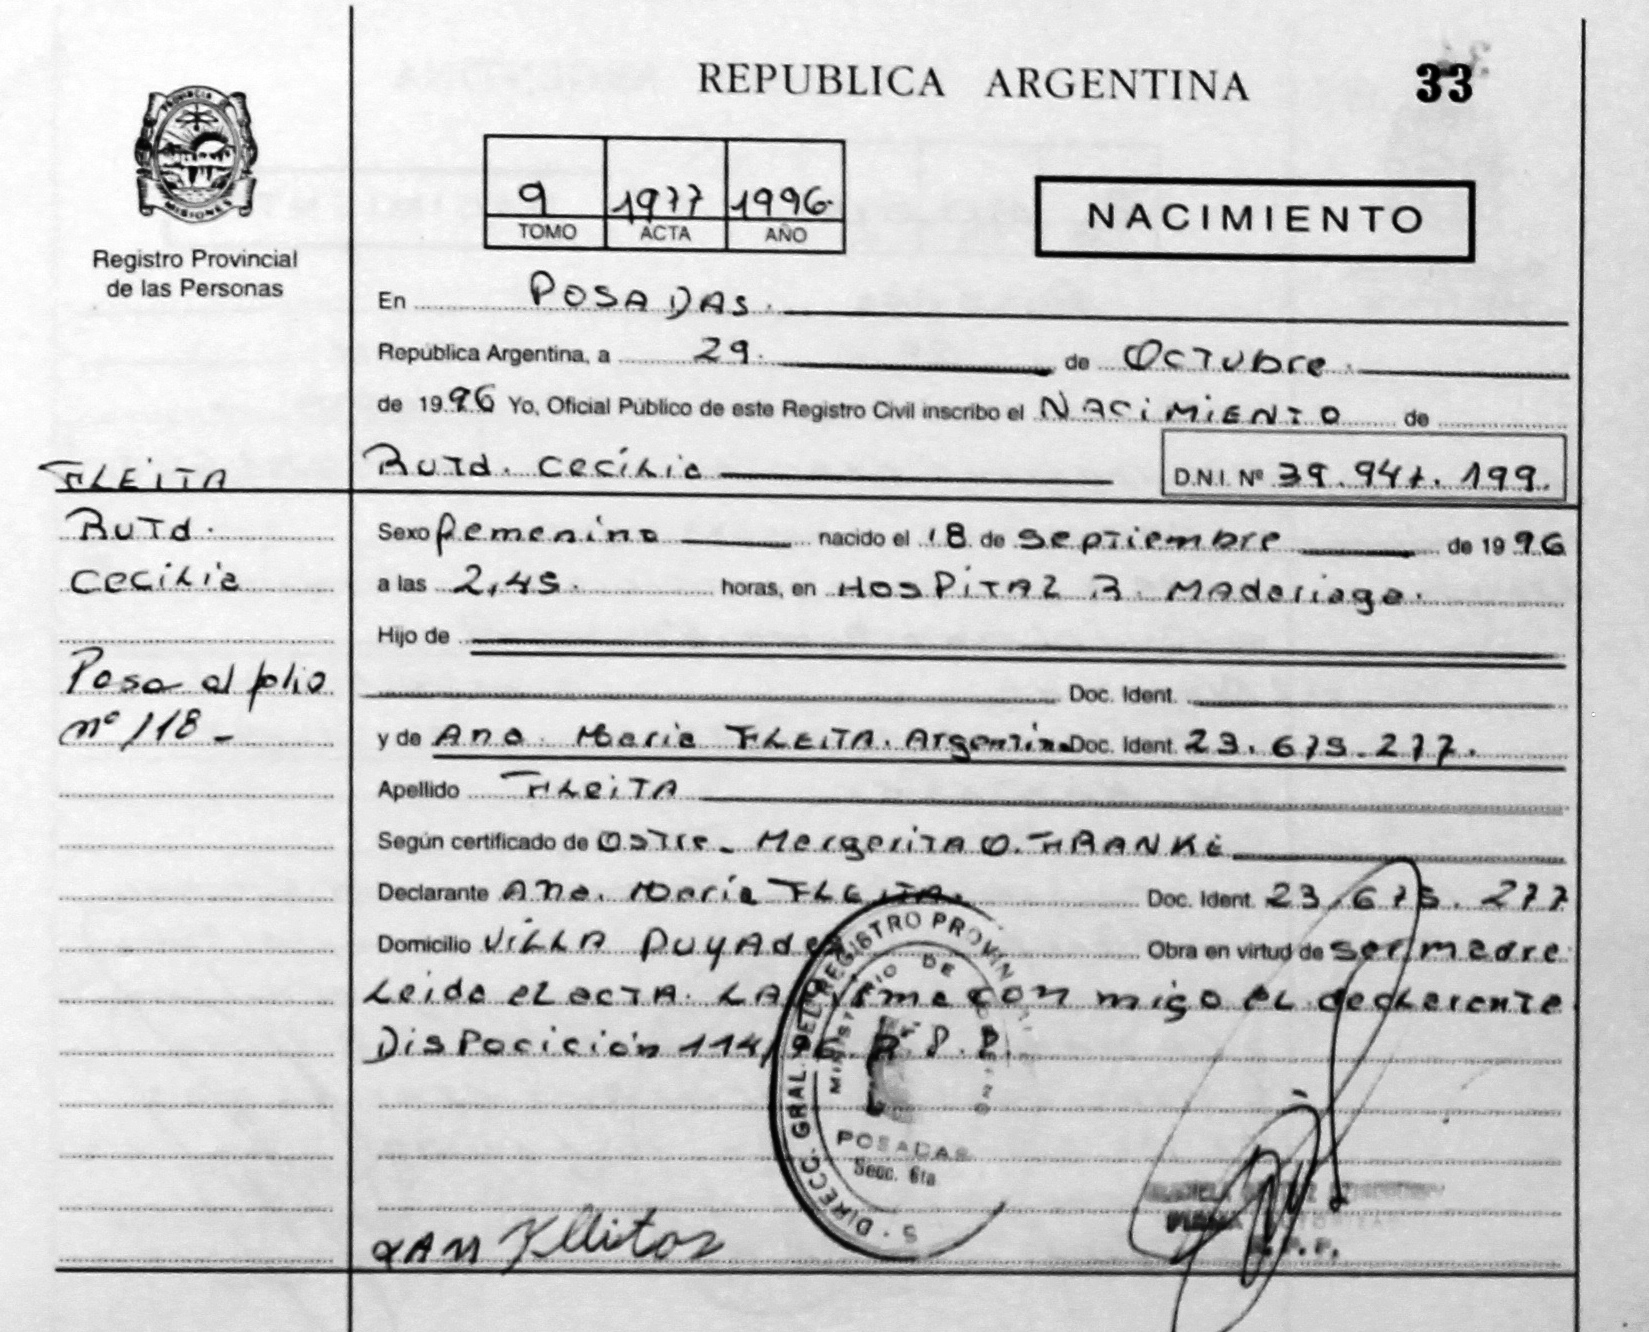 REPUBLICA ARGENTINA
33
PROVINCIA DE
MISIONES
Registro Provincial
de las Personas
9 1977 1996.
TOMO ACTA AÑO
NACIMIENTO
En POSADAS.
República Argentina, a 29. de Octubre.
de 1996 Yo, Oficial Público de este Registro Civil inscribo el NACIMIENTO de
Rutd. Cecilia
D.N.I. Nº 39.947.199.
FLEITA
Rutd.
Cecilia
Pasa al folio
nº 118 -
Sexo femenino nacido el 18 de septiembre de 1996
a las 2,45. horas, en HOSPITAL R. Madariaga.
Hijo de
Doc. Ident.
y de Ana Maria FLEITA. Argentina Doc. Ident. 23.675.277.
Apellido FLEITA
Según certificado de Obstre. Margarita O. FRANKE
Declarante Ana. Maria FLEITA. Doc. Ident. 23.675.277
Domicilio VILLA Puyades Obra en virtud de ser madre
Leida el acta. LA firma con migo el declarante
Disposición 114/96 R.P.P.
DIRECC. GRAL. DEL REGISTRO PROVIN
MINISTERIO DE
POSADAS
Secc. 6ta